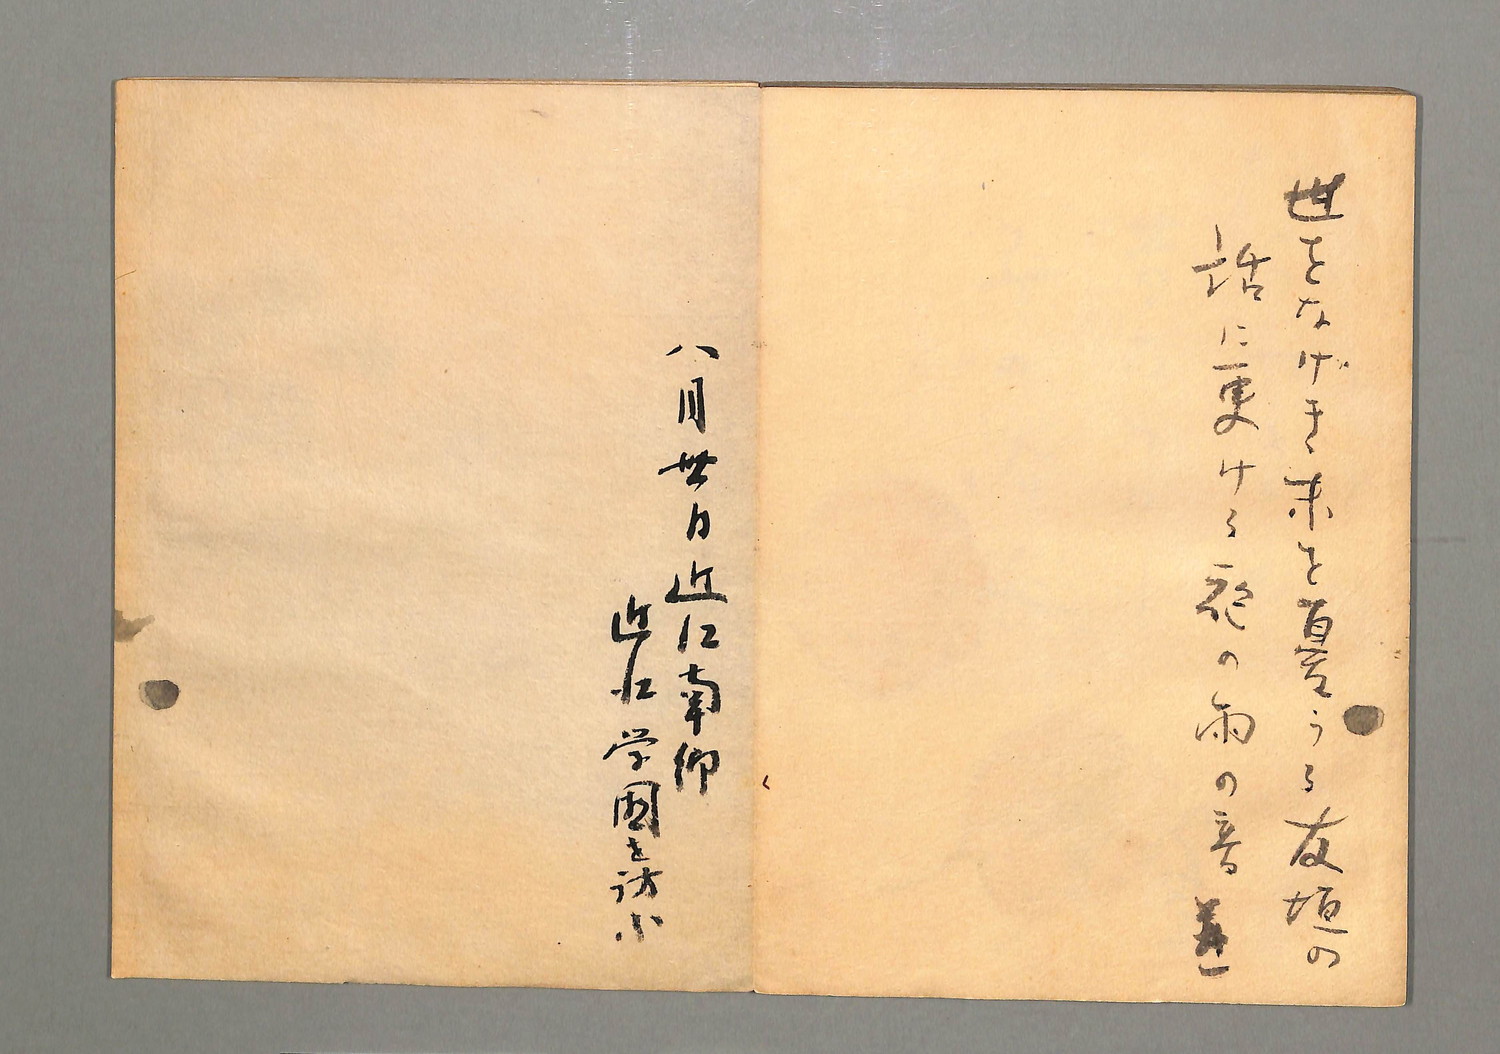 世をなげき末を憂うる友垣の
話に更ける の雨の音
八月廿日近江南郷
近江学園を訪ふ